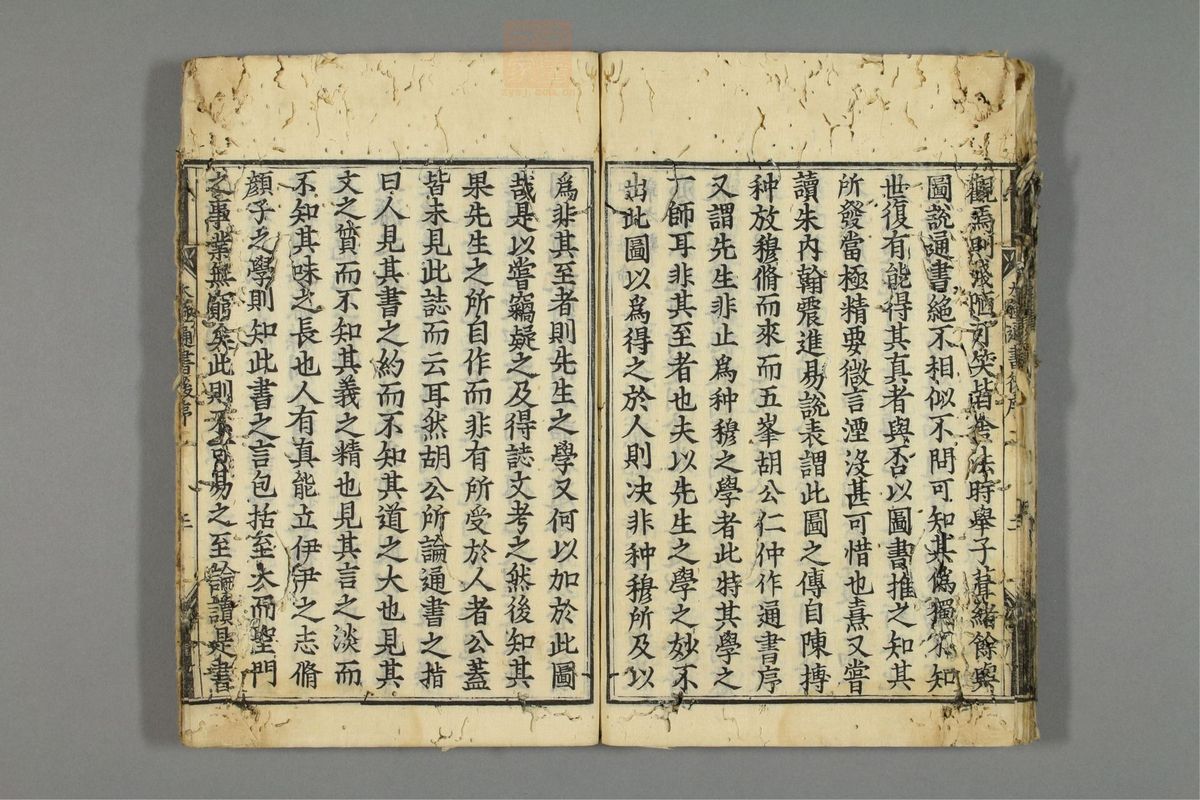 觀焉則淺陋可笑皆舍法時舉子葺緒餘與
圖說通書絕不相似不問可知其僞獨不知
世復有能得其真者與否以圖書推之知其
所發當極精要微言湮沒甚可惜也熹又嘗
讀朱內翰震進易說表謂此圖之傳自陳摶
种放穆脩而來而五峯胡公仁仲作通書序
又謂先生非止爲种穆之學者此特其學之
一師耳非其至者也夫以先生之學之妙不
出此圖以爲得之於人則决非种穆所及以
爲非其至者則先生之學又何以加於此圖
哉是以嘗竊疑之及得誌文考之然後知其
果先生之所自作而非有所受於人者公蓋
皆未見此誌而云耳然胡公所論通書之指
曰人見其書之約而不知其道之大也見其
文之質而不知其義之精也見其言之淡而
不知其味之長也人有真能立伊尹之志脩
顏子之學則知此書之言包括至大而聖門
之事業無窮矣此則不可易之至論讀是書
太極通書後序
三